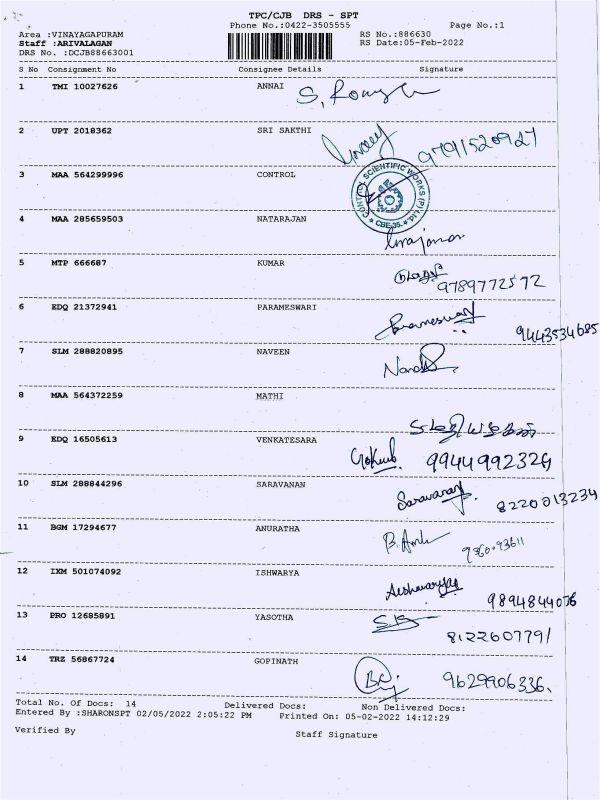 TPC/CJB DRS - SPT
Phone No.:0422-3505555 Page No.:1
Area :VINAYAGAPURAM RS No.:886630
Staff :ARIVALAGAN RS Date:05-Feb-2022
DRS No. :DCJB88663001
S No Consignment No Consignee Details Signature
1 TMI 10027626 ANNAI
2 UPT 2018362 SRI SAKTHI 9791520927
3 MAA 564299996 CONTROL
CONTROL SCIENTIFIC WORKS (P) Ltd. CBE-35.
4 MAA 285659503 NATARAJAN
5 MTP 666687 KUMAR
9789772572
6 EDQ 21372941 PARAMESWARI Parameswari
9443534685
7 SLM 288820895 NAVEEN
8 MAA 564372259 MATHI
9 EDQ 16505613 VENKATESARA Gokul. 9944992329
10 SLM 288844296 SARAVANAN Saravanan. 8220013234
11 BGM 17294677 ANURATHA
12 IXM 501074092 ISHWARYA Aishwarya
9894844076
13 PRO 12685891 YASOTHA
8122607791
14 TRZ 56867724 GOPINATH 9629906336.
Total No. Of Docs: 14 Delivered Docs: Non Delivered Docs:
Entered By :SHARONSPT 02/05/2022 2:05:22 PM Printed On: 05-02-2022 14:12:29
Verified By Staff Signature